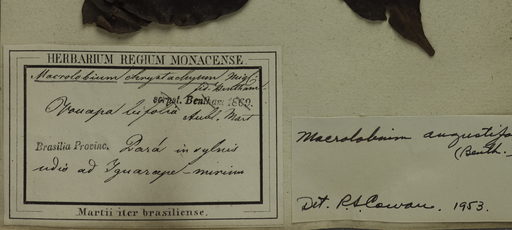 HERBARIUM REGIUM MONACENSE.
Macrolobium chrystachyum Miq:
fid. Bentham.
cognl. Benthav: 1869.
Vouapa bifolia Aubl. Mart
Brasilia Provinc. Pará in sylvis
udis ad Iguarape-mirim
Martii iter brasiliense.
Macrolobium angustifo
(Benth.
Det. R.S. Cowan. 1953.